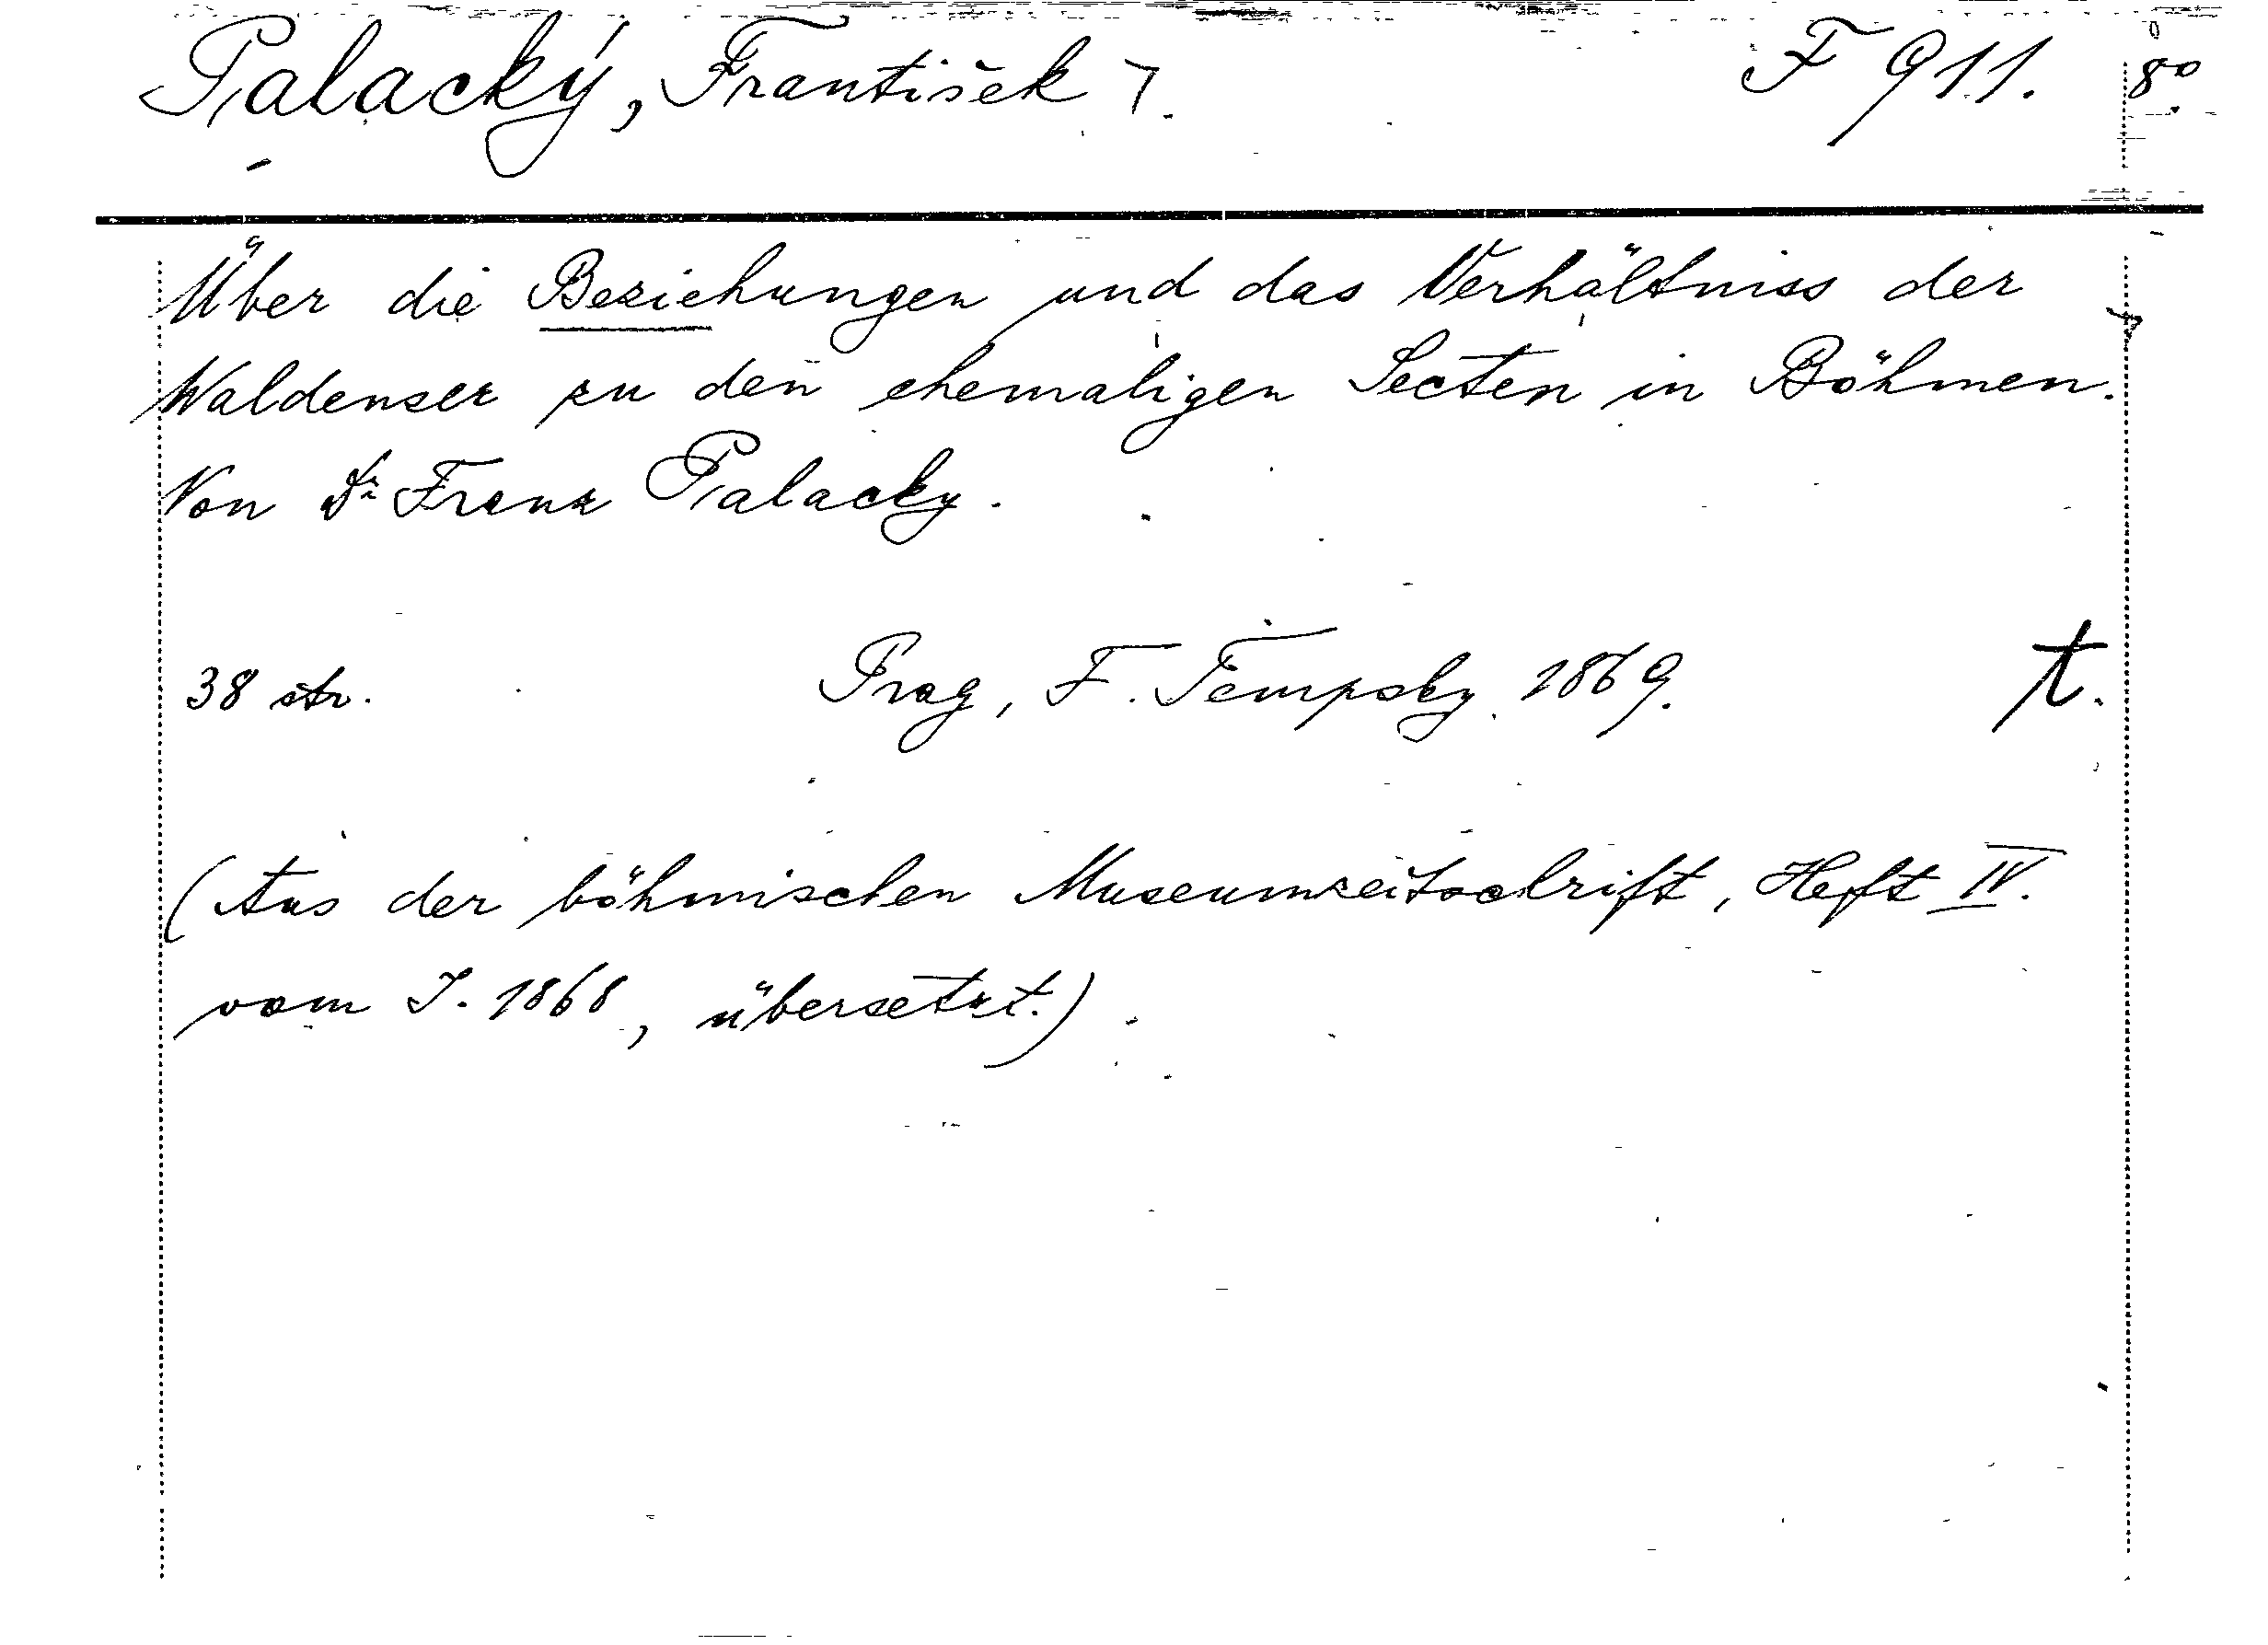 Palacký, František 7. F 911. 8°
Über die Beziehungen und das Verhältniss der
Waldenser zu den ehemaligen Secten in Böhmen.
Von Dr Franz Palacky.
38 str. Prag, F. Tempsky. 1869. t.
(Aus der böhmischen Museumzeitschrift, Heft IV.
vom J. 1868, übersetzt.)